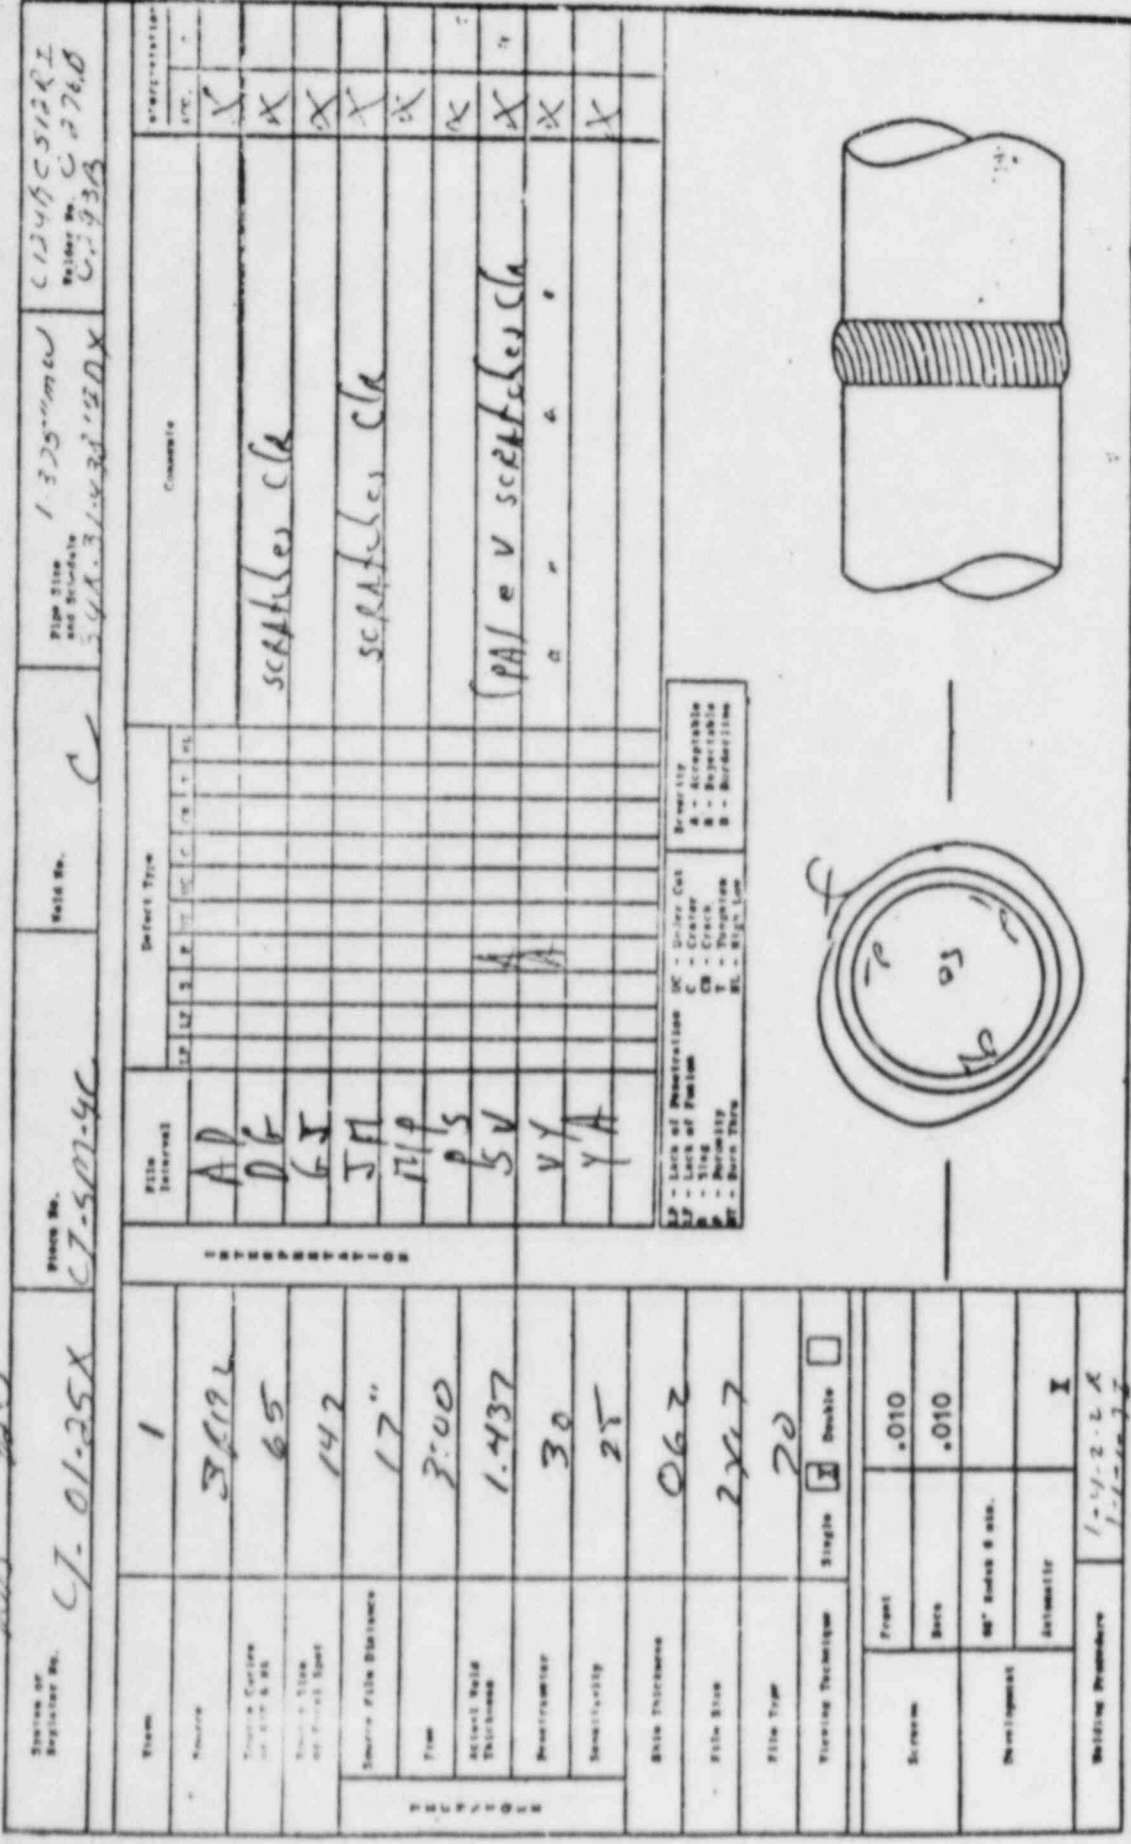 System or
Register No.
CT-01-25X
Piece No.
CT-SM-4C
Weld No.
C
Pipe Size
and Schedule
1.375" MW
C124BC512RI
Welder No. C 276B
C293B
Views
1
Source
Source Film Distance
17"
Time
3:00
Actual Weld
Thickness
1.437
Penetrameter
30
Sensitivity
2T
Shim Thickness
062
Film Size
2X17
Film Type
70
Viewing Technique
Single X Double
Screens
Front
.010
Back
.010
Development
Automatic
X
Welding Procedure
1-4-2-2 R
TECHNIQUE
INTERPRETATION
Film
Interval
Defect Type
Comments
Interpretation
Acc.
LP LF S P
A D
X
D G
SCRAtches ClR
X
G J
X
J M
SCRAtches ClR
X
M P
X
P S
X
S V
A
(PA) @ V SCRAtches ClR
X
V Y
A
" " " "
X
Y A
X
LP - Lack of Penetration
LF - Lack of Fusion
S - Slag
P - Porosity
BT - Burn Thru
UC - Under Cut
C - Crater
CR - Crack
T - Tungsten
HL - High Low
Severity
A - Acceptable
R - Rejectable
B - Borderline